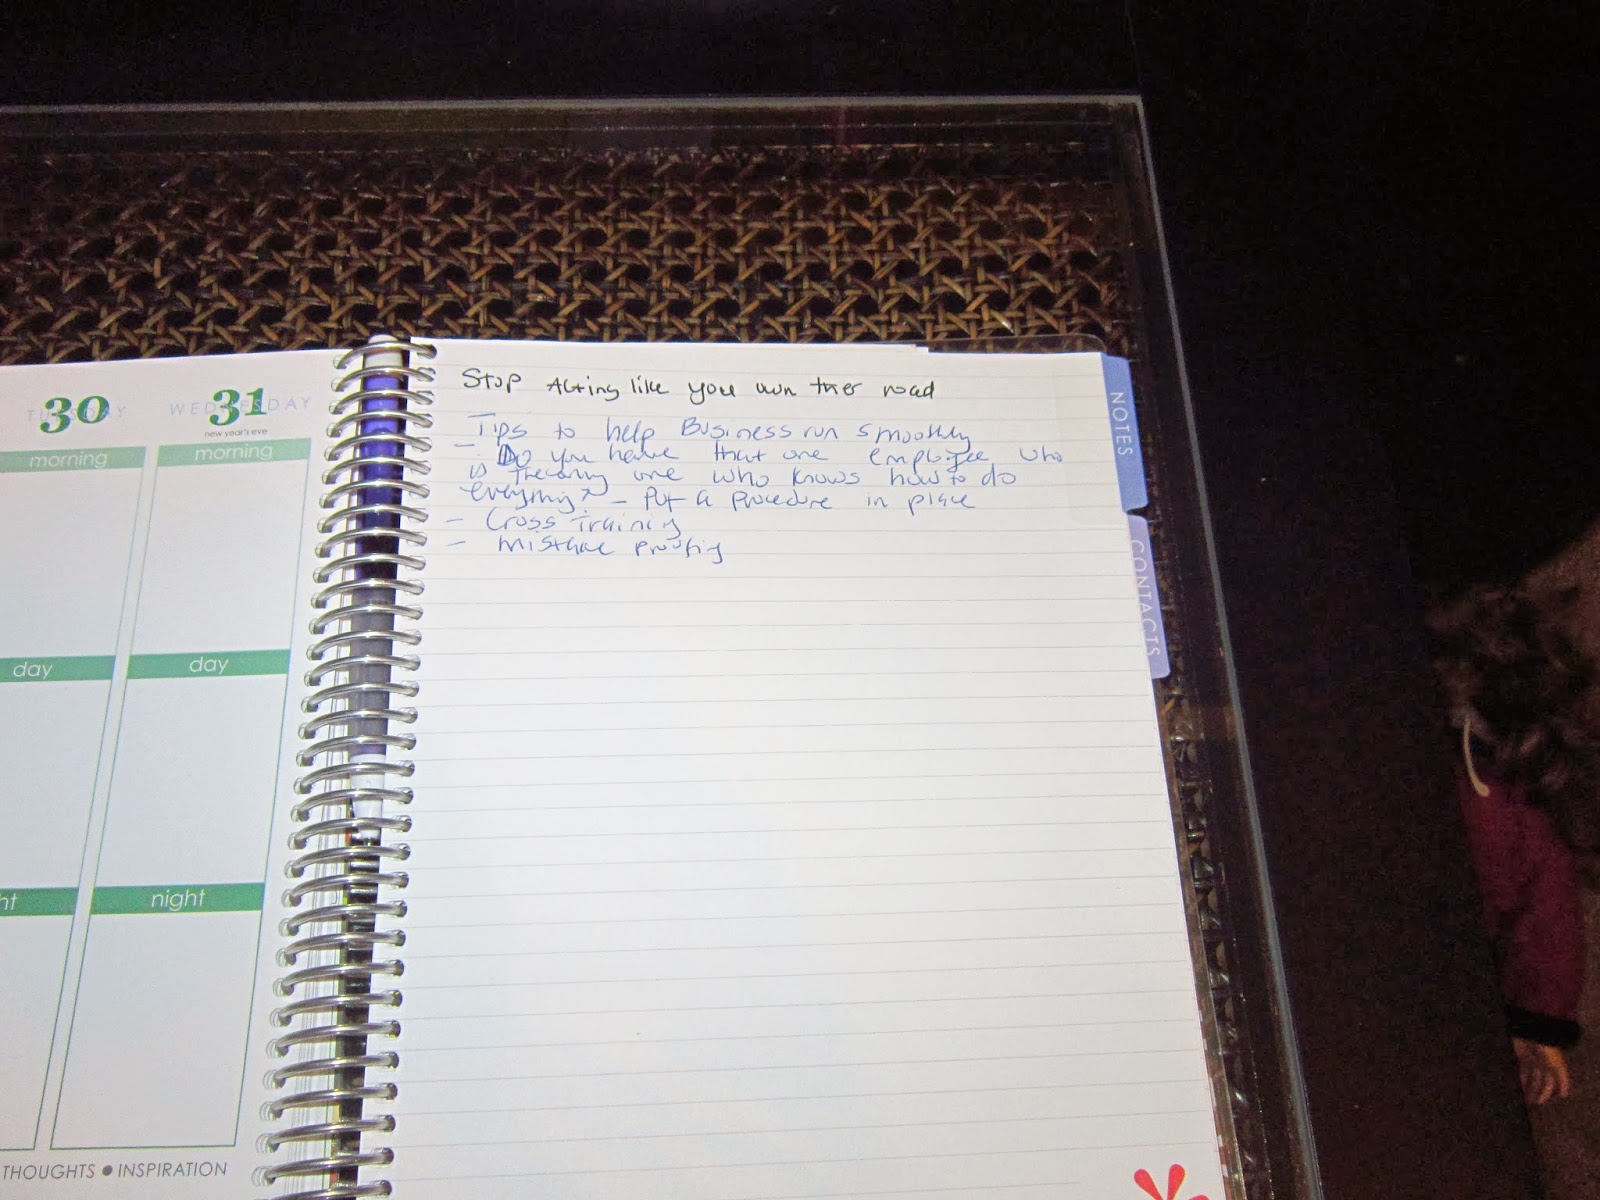 TUESDAY
30
WEDNESDAY
31
new year's eve
morning
morning
day
day
ht
night
THOUGHTS ● INSPIRATION
Stop Acting like you own the road
Tips to help Business run smoothly
- Do you have that one employee who
is the only one who knows how to do
everything? - Put a procedure in place
- Cross Training
- mistake proofing
NOTES
CONTACTS